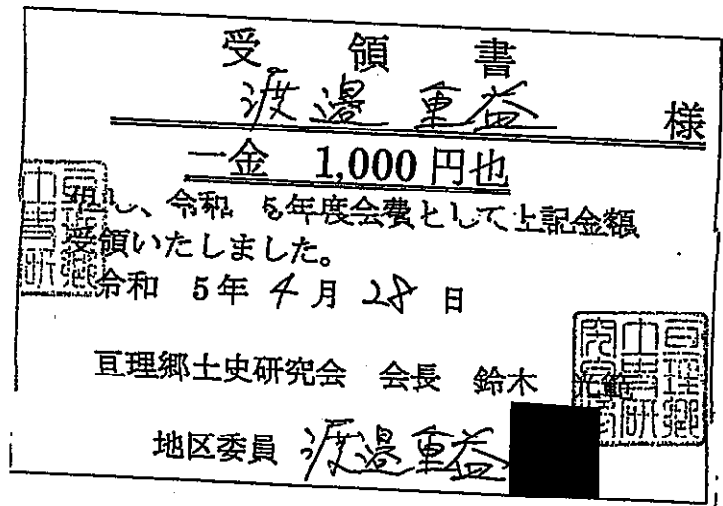 受領書
渡邉 重益 様
一金 1,000円也
但し、令和 5年度会費として上記金額
受領いたしました。
令和 5年 4月 28日
亘理郷土史研究会 会長 鈴木 光範
地区委員 渡邉重益